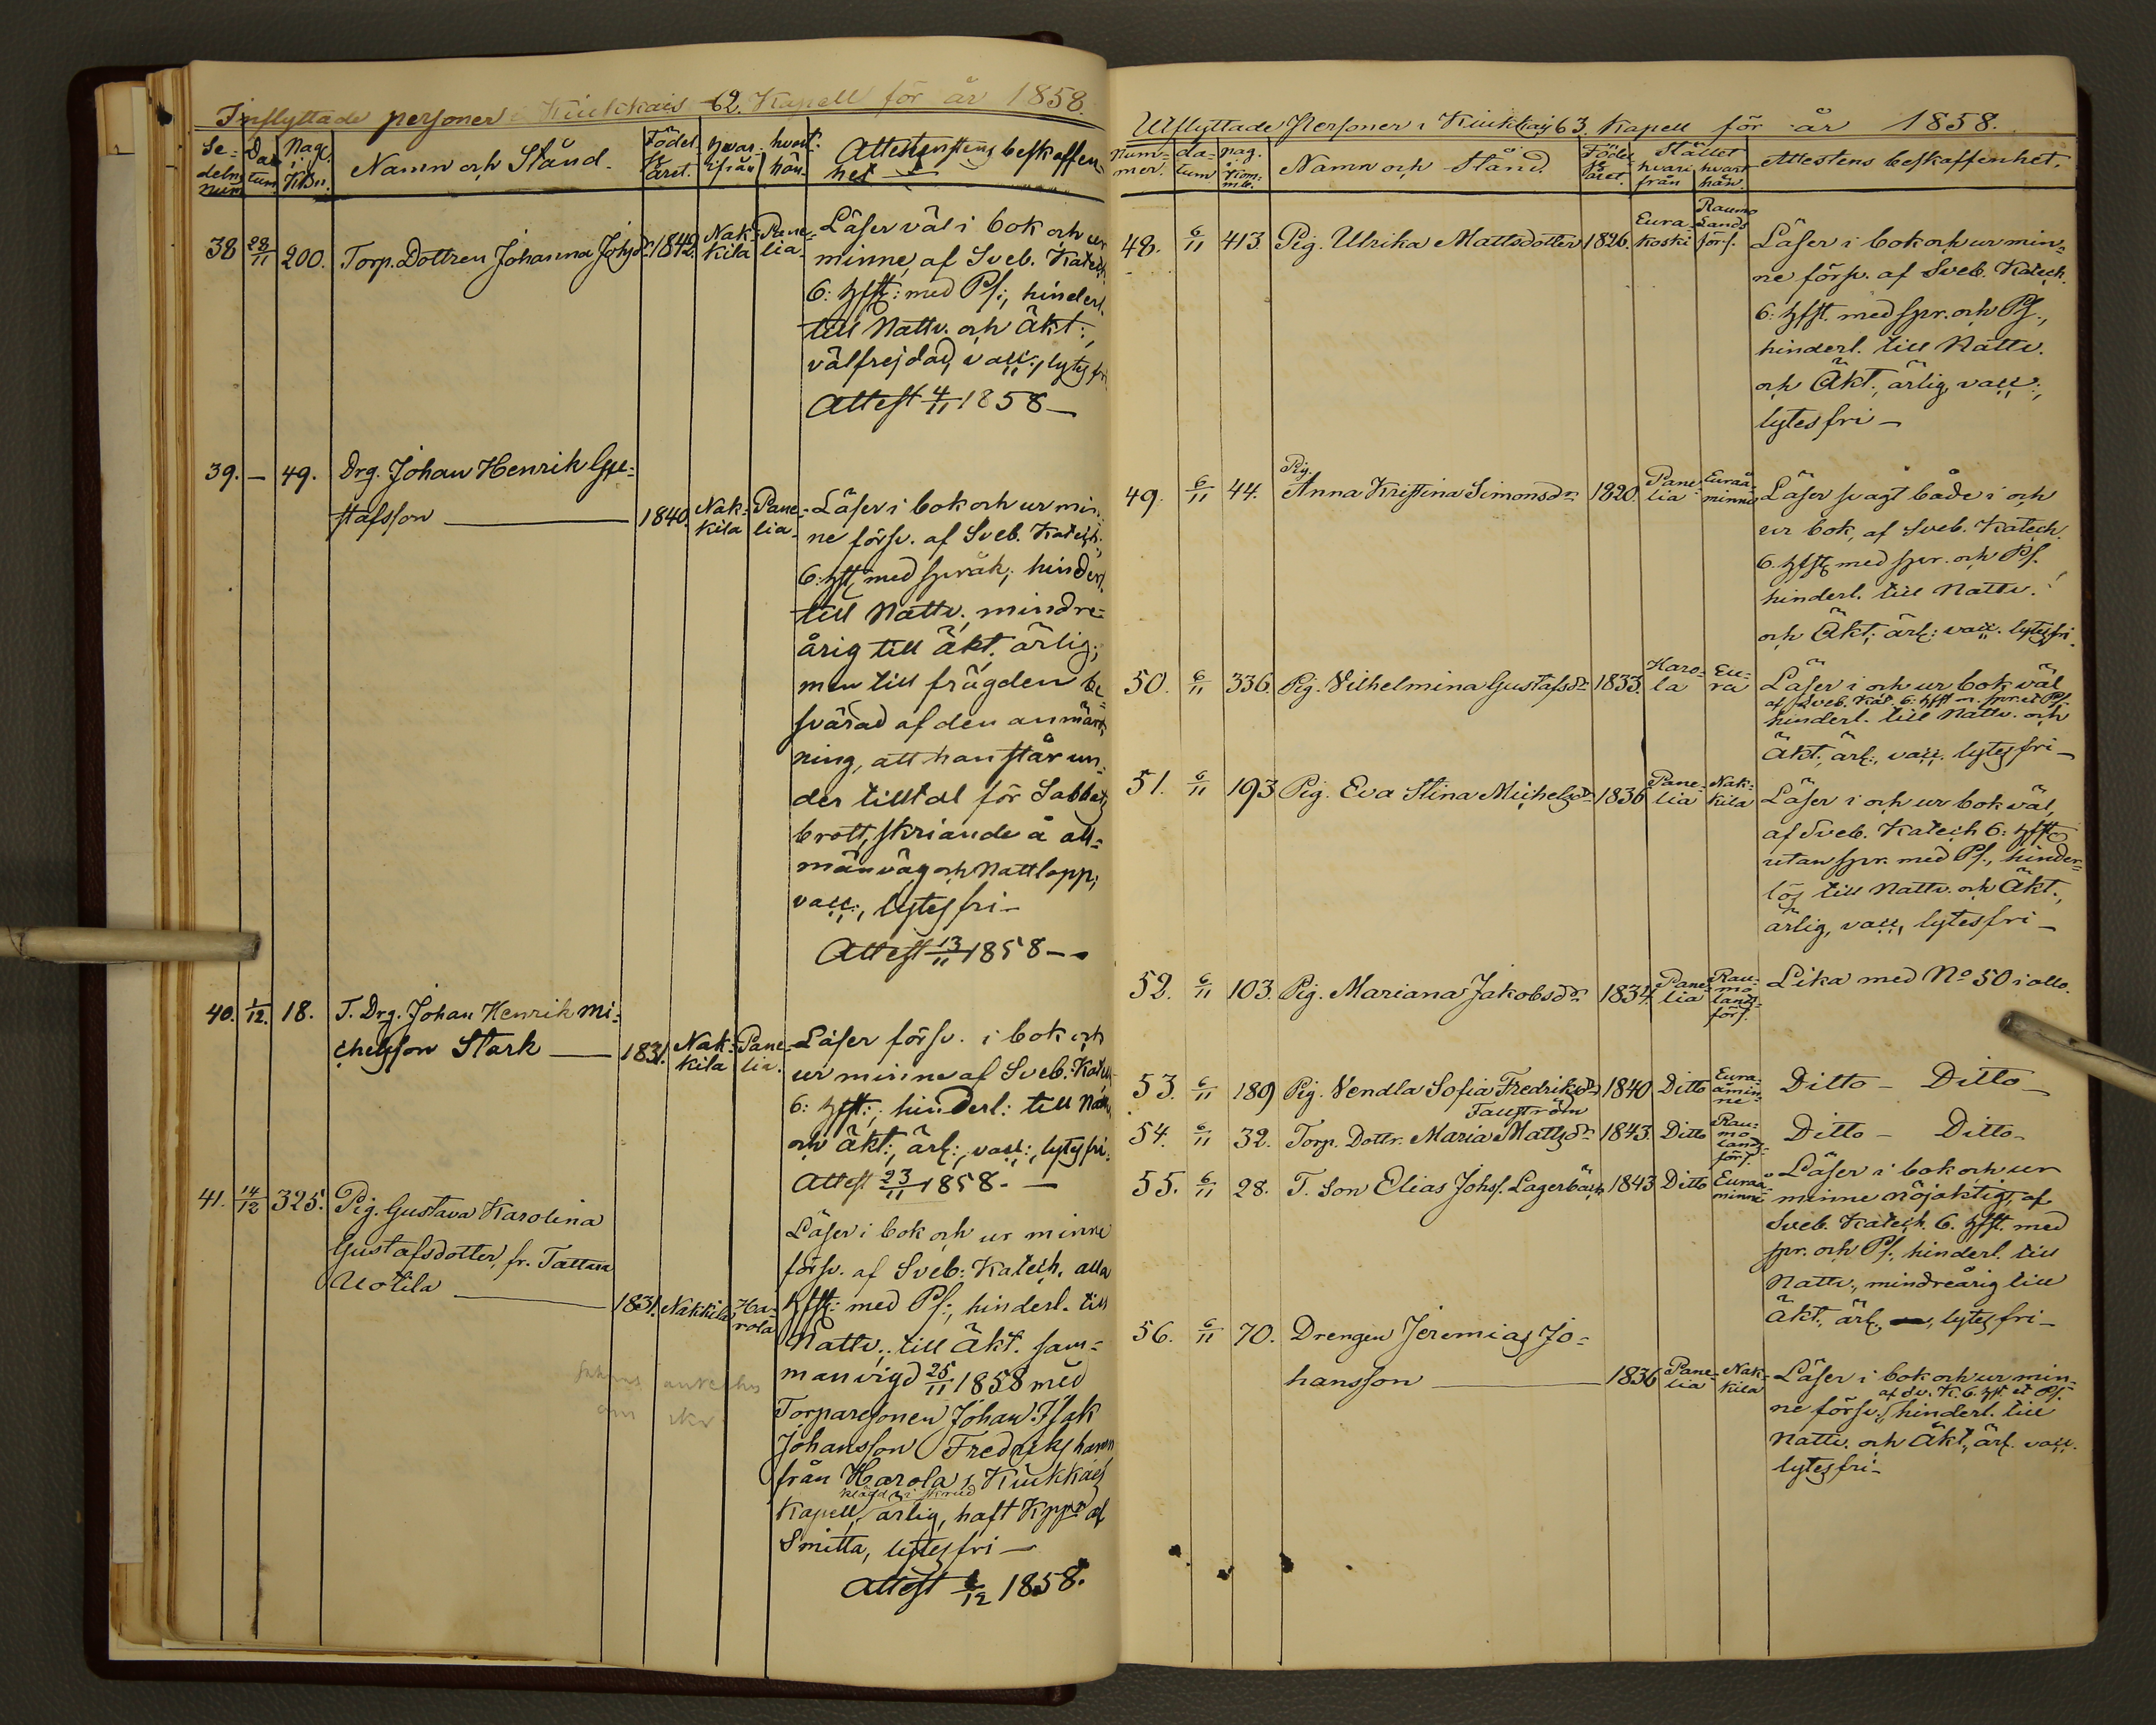 Inflyttade personer i Kiukkais 62. Kapell för år 1858.
Se-
delns
num
Da
tum
Pag.
i
KBn.
Namn och Stånd.
Födel
se
året.
hvar
ifrån
hvart
hän
Attestens beskaffen-
het
38 28/11 200. Torp. Dottren Johanna Johsdr 1842. Nak- Pane-
kila lia.
Läser väl i bok och ur
minne, af Sveb. Katech.
6: hfst: med Ps:, hinderl.
till Nattv. och Äkt:,
välfrejdad, vacc:, lytes fri
Attest 4/11 1858 —
39. — 49. Drg. Johan Henrik Gu-
stafsson — 1840. Nak- Pane-
kila lia.
Läser i bok och ur min-
ne försv. af Sveb. Katech.
6: hfst, med språk, hinderl.
till Nattv., mindre-
årig till äkt. ärlig;
men till frägden be
svärad af den anmärk-
ning, att han står un-
der tilltal för Sabbats
brott, skriande å all-
män väg och Nattlopp;
vacc:, lytes fri —
Attest 13/11 1858 —
40. 1/12. 18. T. Drg. Johan Henrik Mi-
chelsson Stark — 1831. Nak- Pane-
kila lia.
Läser försv. i bok och
ur minne af Sveb. Katech
6: hfst: hinderl: till Nattv,
och äkt:, ärl:, vacc:, lytes fri.
Attest 23/11 1858. —
41. 14/12 325. Pig. Gustava Karolina
Gustafsdotter, fr. Tattara
Uotila — 1831. Nakkila Ha-
rola
Läser i bok och ur minne
försv. af Sveb: Katech. alla
hfst: med Ps:, hinderl. till
Nattv., till Äkt. sam-
manvigd 25/11 1858 med
Torparesonen Johan Isak
Johansson Fredriks
från Harola i Kiukkais
i skrud
Kapell, ärlig, haft Kppr af
Smitta, lytes fri —
Attest 6/12 1858.
Utflyttade Personer i Kiukkais 63. Kapell för år 1858.
Num-
mer.
da-
tum
pag.
i
Kom-
mb.
Namn och Stånd.
Födel
se
året.
Stället
hvari
från
hvart
hän.
Attestens beskaffenhet.
48. 6/11 413 Pig. Ulrika Mattsdotter 1826. Eura-
koski
Raumo
Lands
förs.
Läser i bok och ur min-
ne försv. af Sveb. Katech.
6: hfst. med spr. och Ps.,
hinderl. till Nattv.
och Äkt., ärlig, vacc.,
lytes fri —
49. 6/11 44. Pig.
Anna Kristina Simonsdr 1820. Pane-
lia
Euraå-
minne
Läser svagt både i och
ur bok, af Sveb. Katech.
6. hfst med spr. och Ps.
hinderl. till Nattv.
och Äkt., ärl: vacc. lytes fri.
50. 6/11 336. Pig. Vilhelmina Gustafsdr 1833. Haro-
la
Eu-
ra
Läser i och ur bok väl
af Sveb. Kat. 6: hfst m. spr. et Ps.
hinderl. till Nattv. och
Äkt., ärl:, vacc. lytes fri —
51. 6/11 193 Pig. Eva Stina Michelsdr 1836 Pane-
lia
Nak-
kila
Läser i och ur bok väl,
af Sveb. Katech 6: hfst
utan spr. med Ps., hinder-
lös till Nattv. och Äkt.,
ärlig, vacc, lytes fri —
52. 6/11 103. Pig. Mariana Jakobsdr 1834. Pane-
lia
Rau-
mo
lands-
förs.
Lika med No 50 i allo.
53. 6/11 189 Pig. Vendla Sofia Fredriksdr 1840 Ditto Eura-
åmin-
ne
Ditto — Ditto —
54. 6/11 32. Torp. Dottr. Maria Mattsdr 1843. Ditto Rau-
mo
lands-
förs.
Ditto — Ditto —
55. 6/11 28. T. Son Elias Johs. Lagerbäck 1843 Ditto Euraå-
minne
Läser i bok och ur
minne nöjaktigt, af
Sveb. Katech. 6. hfst. med
spr. och Ps., hinderl. till
Nattv., mindreårig till
Äkt., ärl., lytes fri —
56. 6/11 70. Drengen Jeremias Jo-
hansson — 1836 Pane-
lia
Nak-
kila
Läser i bok och ur min-
af Sv. K. 6. hfst et Ps.
ne försv., hinderl. till
Nattv. och Äkt., ärl. vacc.
lytes fri —